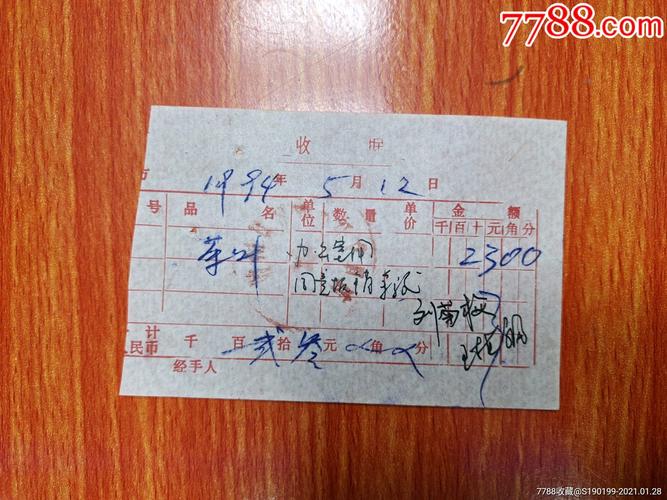 7788.com
收 据
1994年 5月12日
号 品 名 单位 数量 单价 金 额
千百十元角分
茶叶 办公室用 2300
同意报销
计
民币 千 百 贰拾 叁元 角 分
经手人
7788收藏@S190199-2021.01.28